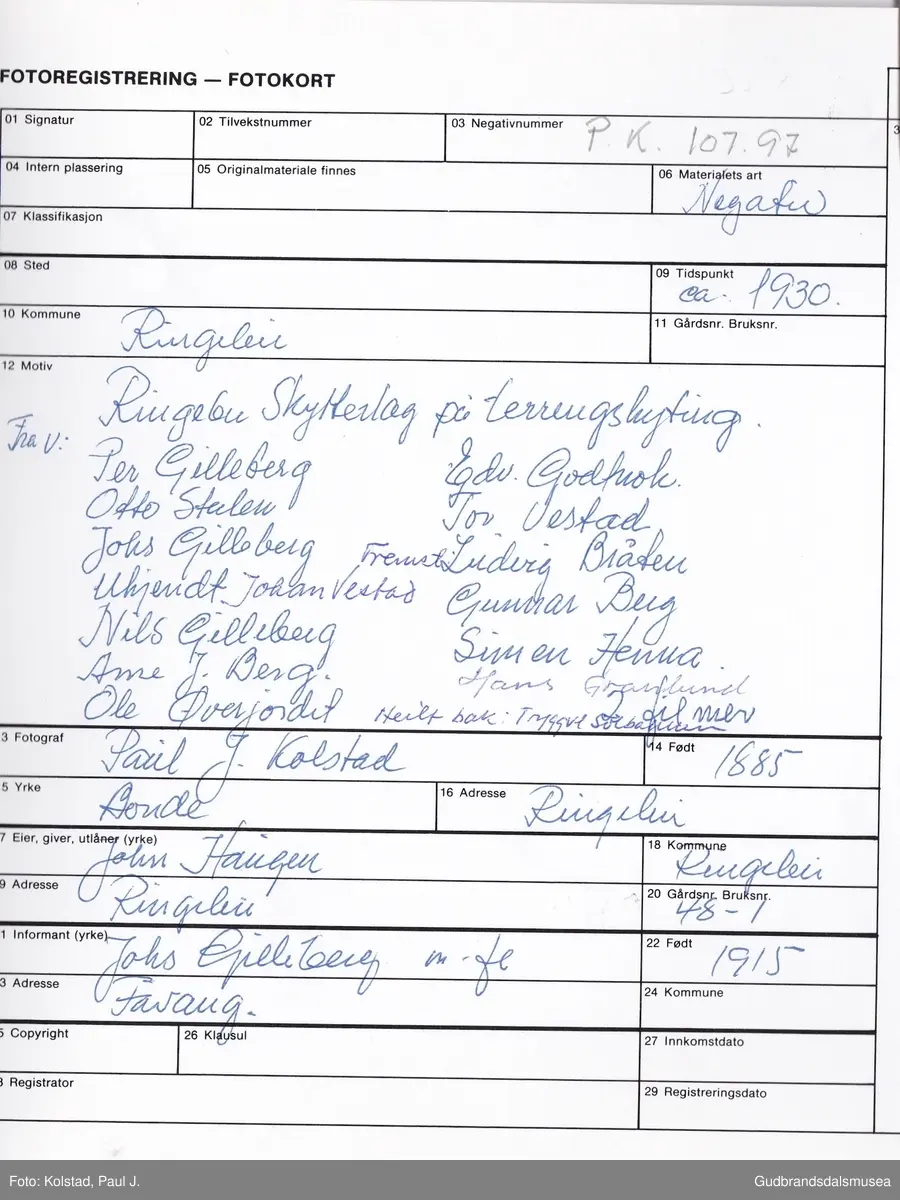 FOTOREGISTRERING — FOTOKORT
01 Signatur
02 Tilvekstnummer
03 Negativnummer P.K. 107.97
04 Intern plassering
05 Originalmateriale finnes
06 Materialets art
Negativ
07 Klassifikasjon
08 Sted
09 Tidspunkt
ca. 1930.
10 Kommune
Ringebu
11 Gårdsnr. Bruksnr.
12 Motiv
Ringebu Skytterlag på terrengskyting.
Fra v:
Per Gilleberg
Otto Stulen
Johs Gilleberg
Ukjendt Johan Vestad
Nils Gilleberg
Arne J. Berg.
Ole Øverjordet
Edv. Godtnok.
Tor Vestad
Fremst: Ludvig Bråten
Gunnar Berg
Simen Henna.
Hans Granlund
2 til mer
Heilt bak: Trygve
3 Fotograf
Paul J. Kolstad
14 Født
1885
5 Yrke
Bonde
16 Adresse
Ringebu
7 Eier, giver, utlåner (yrke)
John Haugen
18 Kommune
Ringebu
9 Adresse
Ringebu
20 Gårdsnr. Bruksnr.
48-1
1 Informant (yrke)
Johs Gilleberg m. fl
22 Født
1915
3 Adresse
Fåvang.
24 Kommune
5 Copyright
26 Klausul
27 Innkomstdato
8 Registrator
29 Registreringsdato
Foto: Kolstad, Paul J.
Gudbrandsdalsmusea